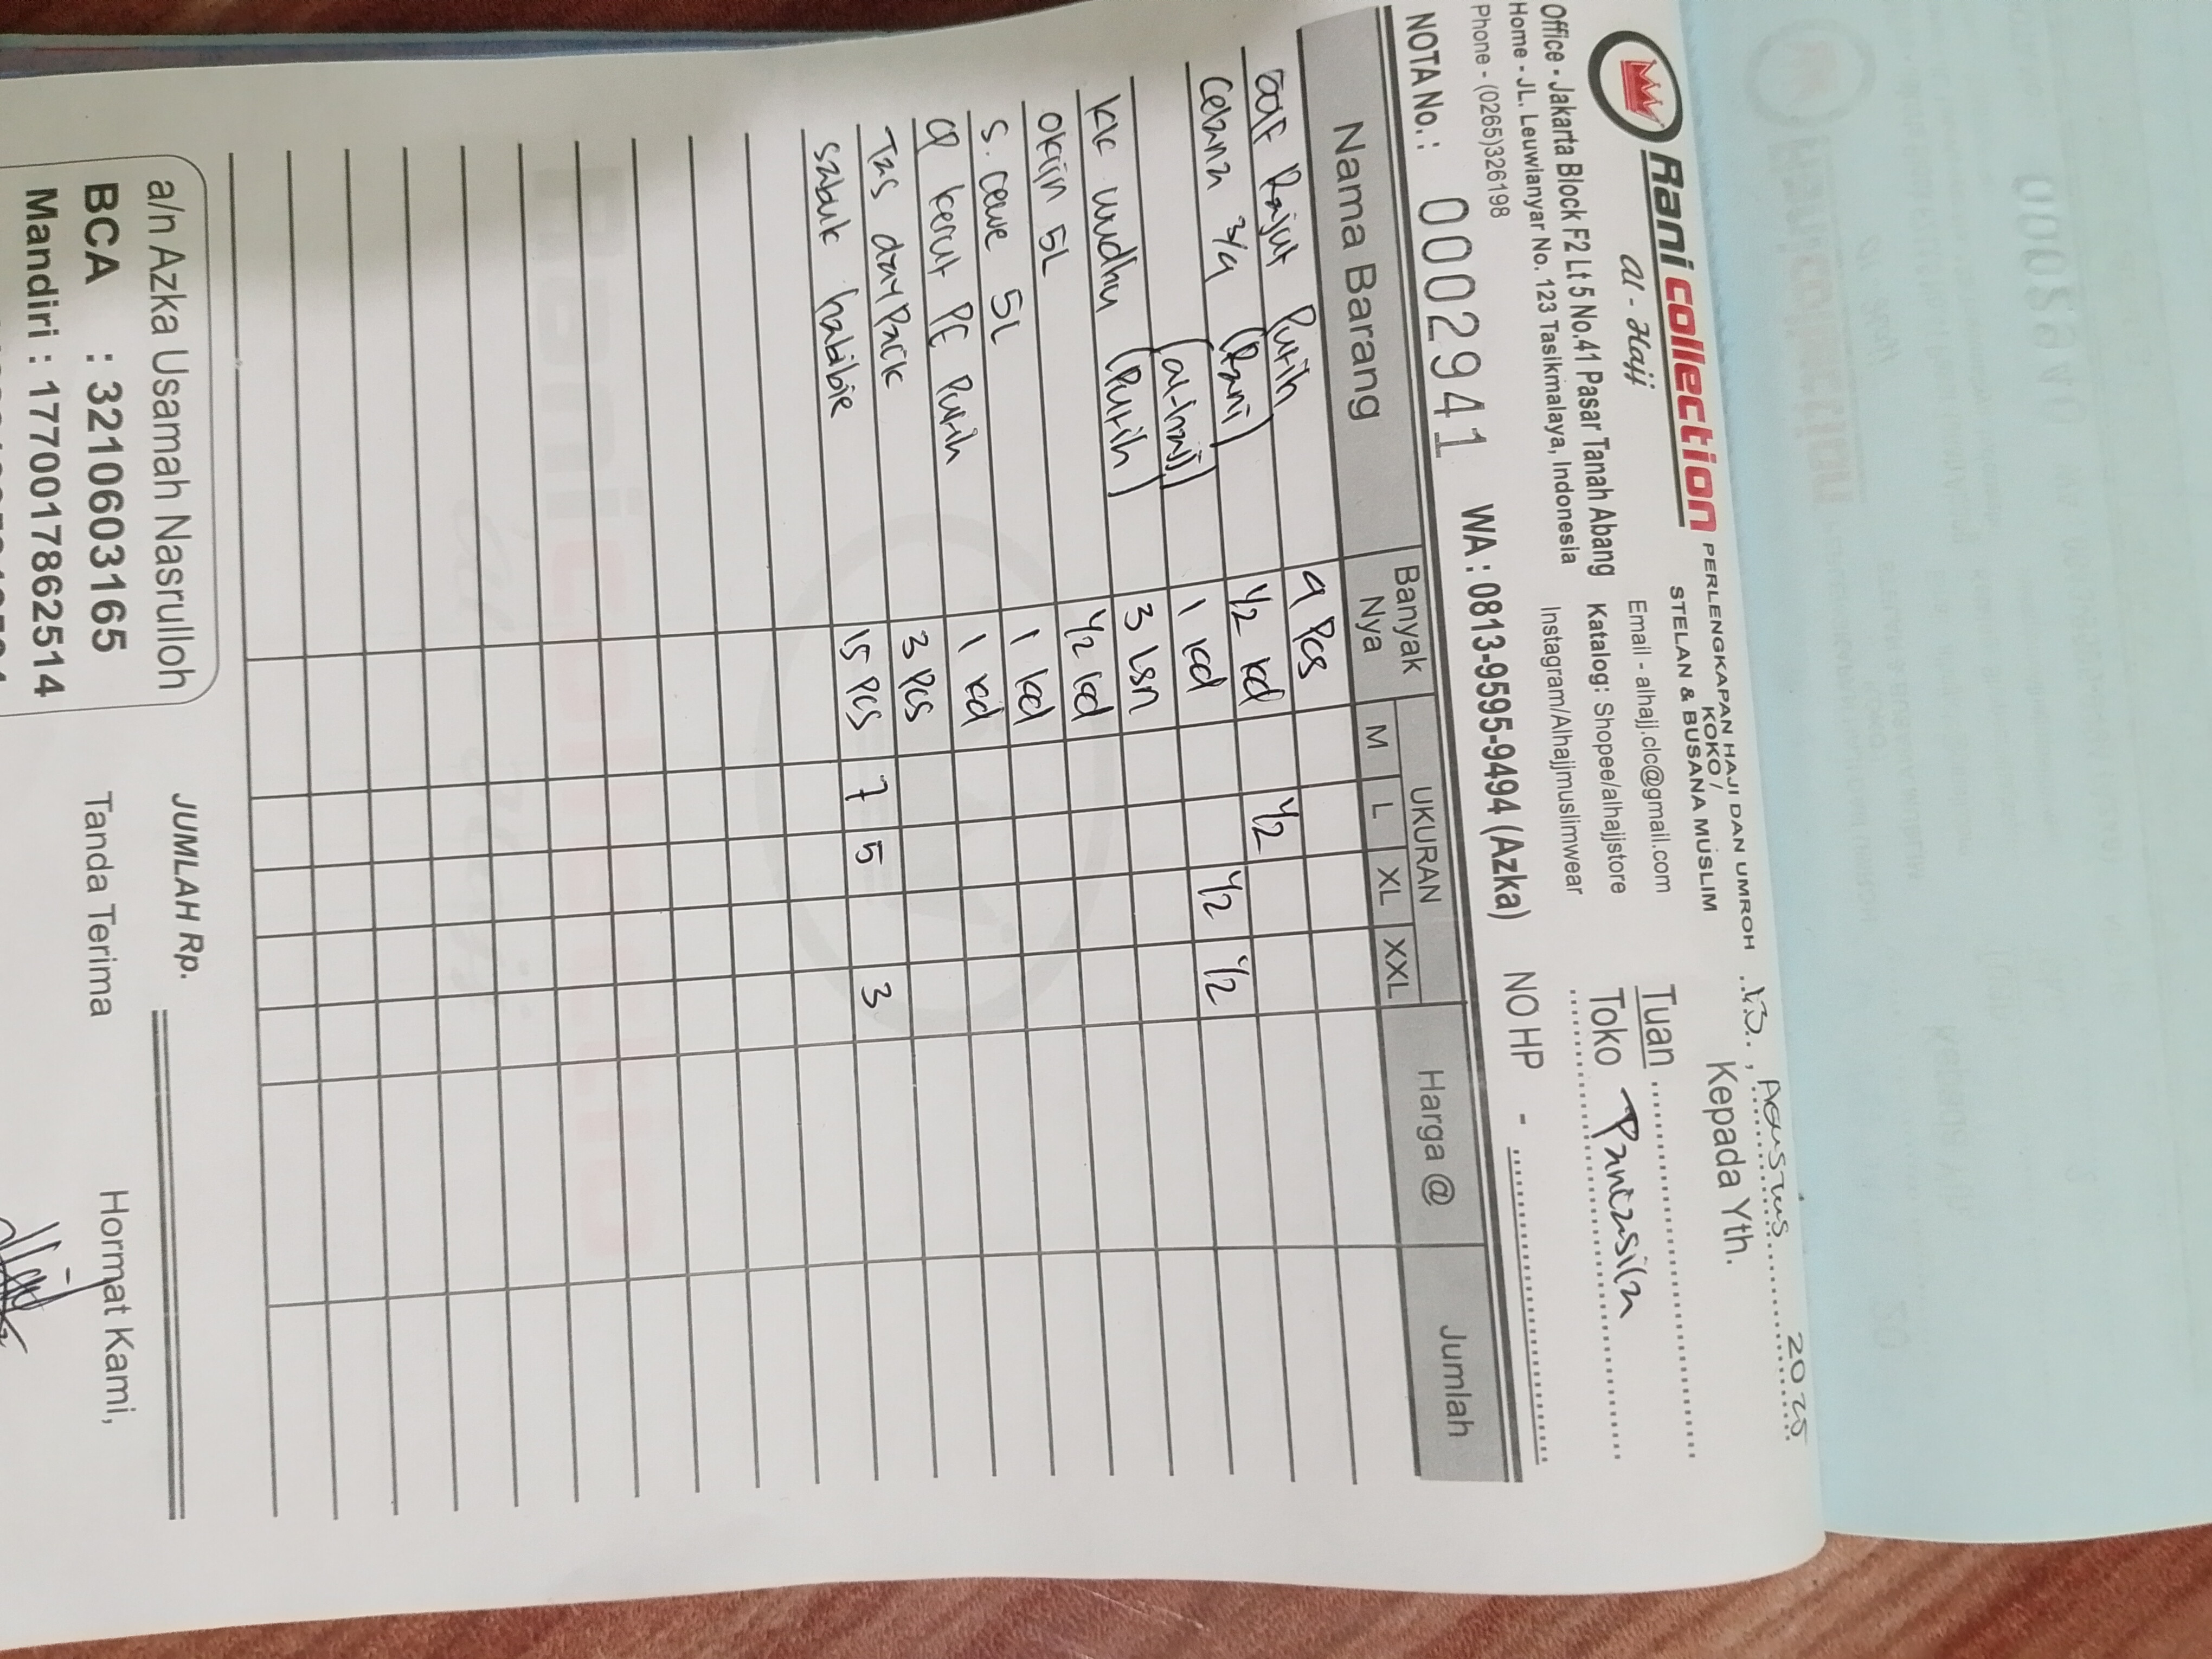 Rani collection
al - Hajj
PERLENGKAPAN HAJI DAN UMROH
KOKO /
STELAN & BUSANA MUSLIM
Office - Jakarta Block F2 Lt 5 No.41 Pasar Tanah Abang
Home - JL. Leuwianyar No. 123 Tasikmalaya, Indonesia
Phone - (0265)326198
Email - alhajj.clc@gmail.com
Katalog: Shopee/alhajjstore
Instagram/Alhajjmuslimwear
13 , Agustus 2025
Kepada Yth.
Tuan
Toko Pancasila
NOTA No. : 0002941 WA : 0813-9595-9494 (Azka) NO HP -
Nama Barang Banyak Nya UKURAN M L XL XXL Harga @ Jumlah
Rajut Putih 9 Pcs
Celana 3/4 (Rani) 1/2 kd 1/2
(al-hajj) 1 kd 1/2 1/2
kk wudhu (Putih) 3 lsn
okijn 5L 1/2 kd
S. cewe 5L 1 kd
CP kerut PE Putih 1 kd
Tas day Pack 3 Pcs
Sabuk habibie 15 Pcs 7 5 3
JUMLAH Rp.
a/n Azka Usamah Nasrulloh
BCA : 3210603165
Mandiri : 1770017862514
Tanda Terima
Hormat Kami,